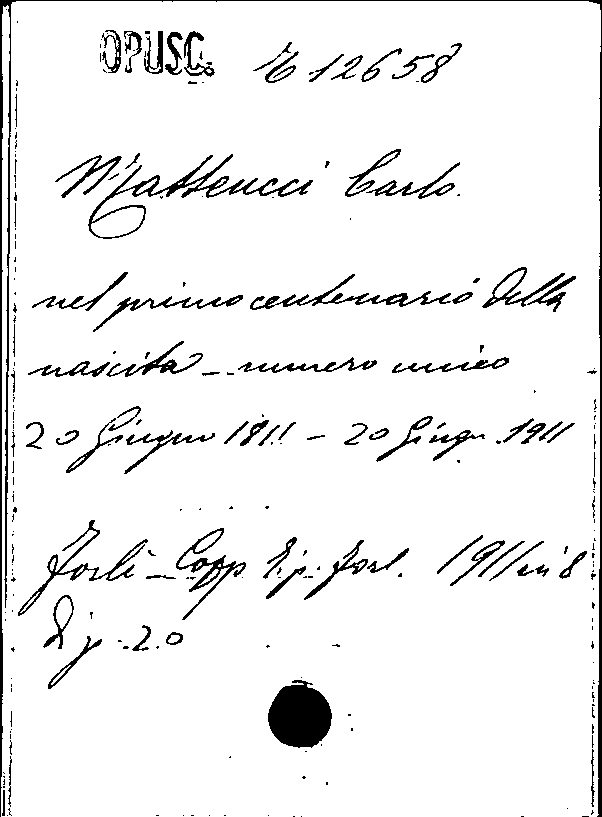 OPUSC. E 12658
Matteucci Carlo.
nel primo centenario della
nascita - numero unico
20 Giugno 1811 - 20 Giugn. 1911
Forlì - Coop Tip. Forl. 1911 in 8
di p. 20